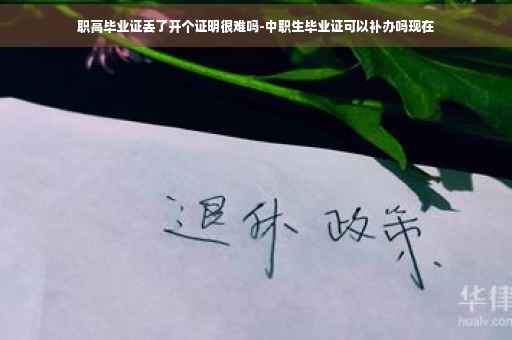 职高毕业证丢了开个证明很难吗-中职生毕业证可以补办吗现在
退休 政策
华律
hualv.com